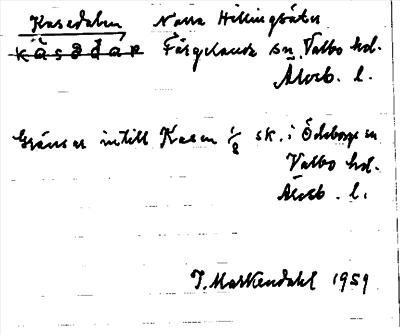 Kasedalen Norra Hillingsäter
kàsədàɽ Färgelanda sn. Valbo hd.
Älvsb. l.
Gränsar intill Kasen 1/8 sk. i Ödeborgs sn
Valbo hd.
Älvsb. l.
J. Markendahl 1959